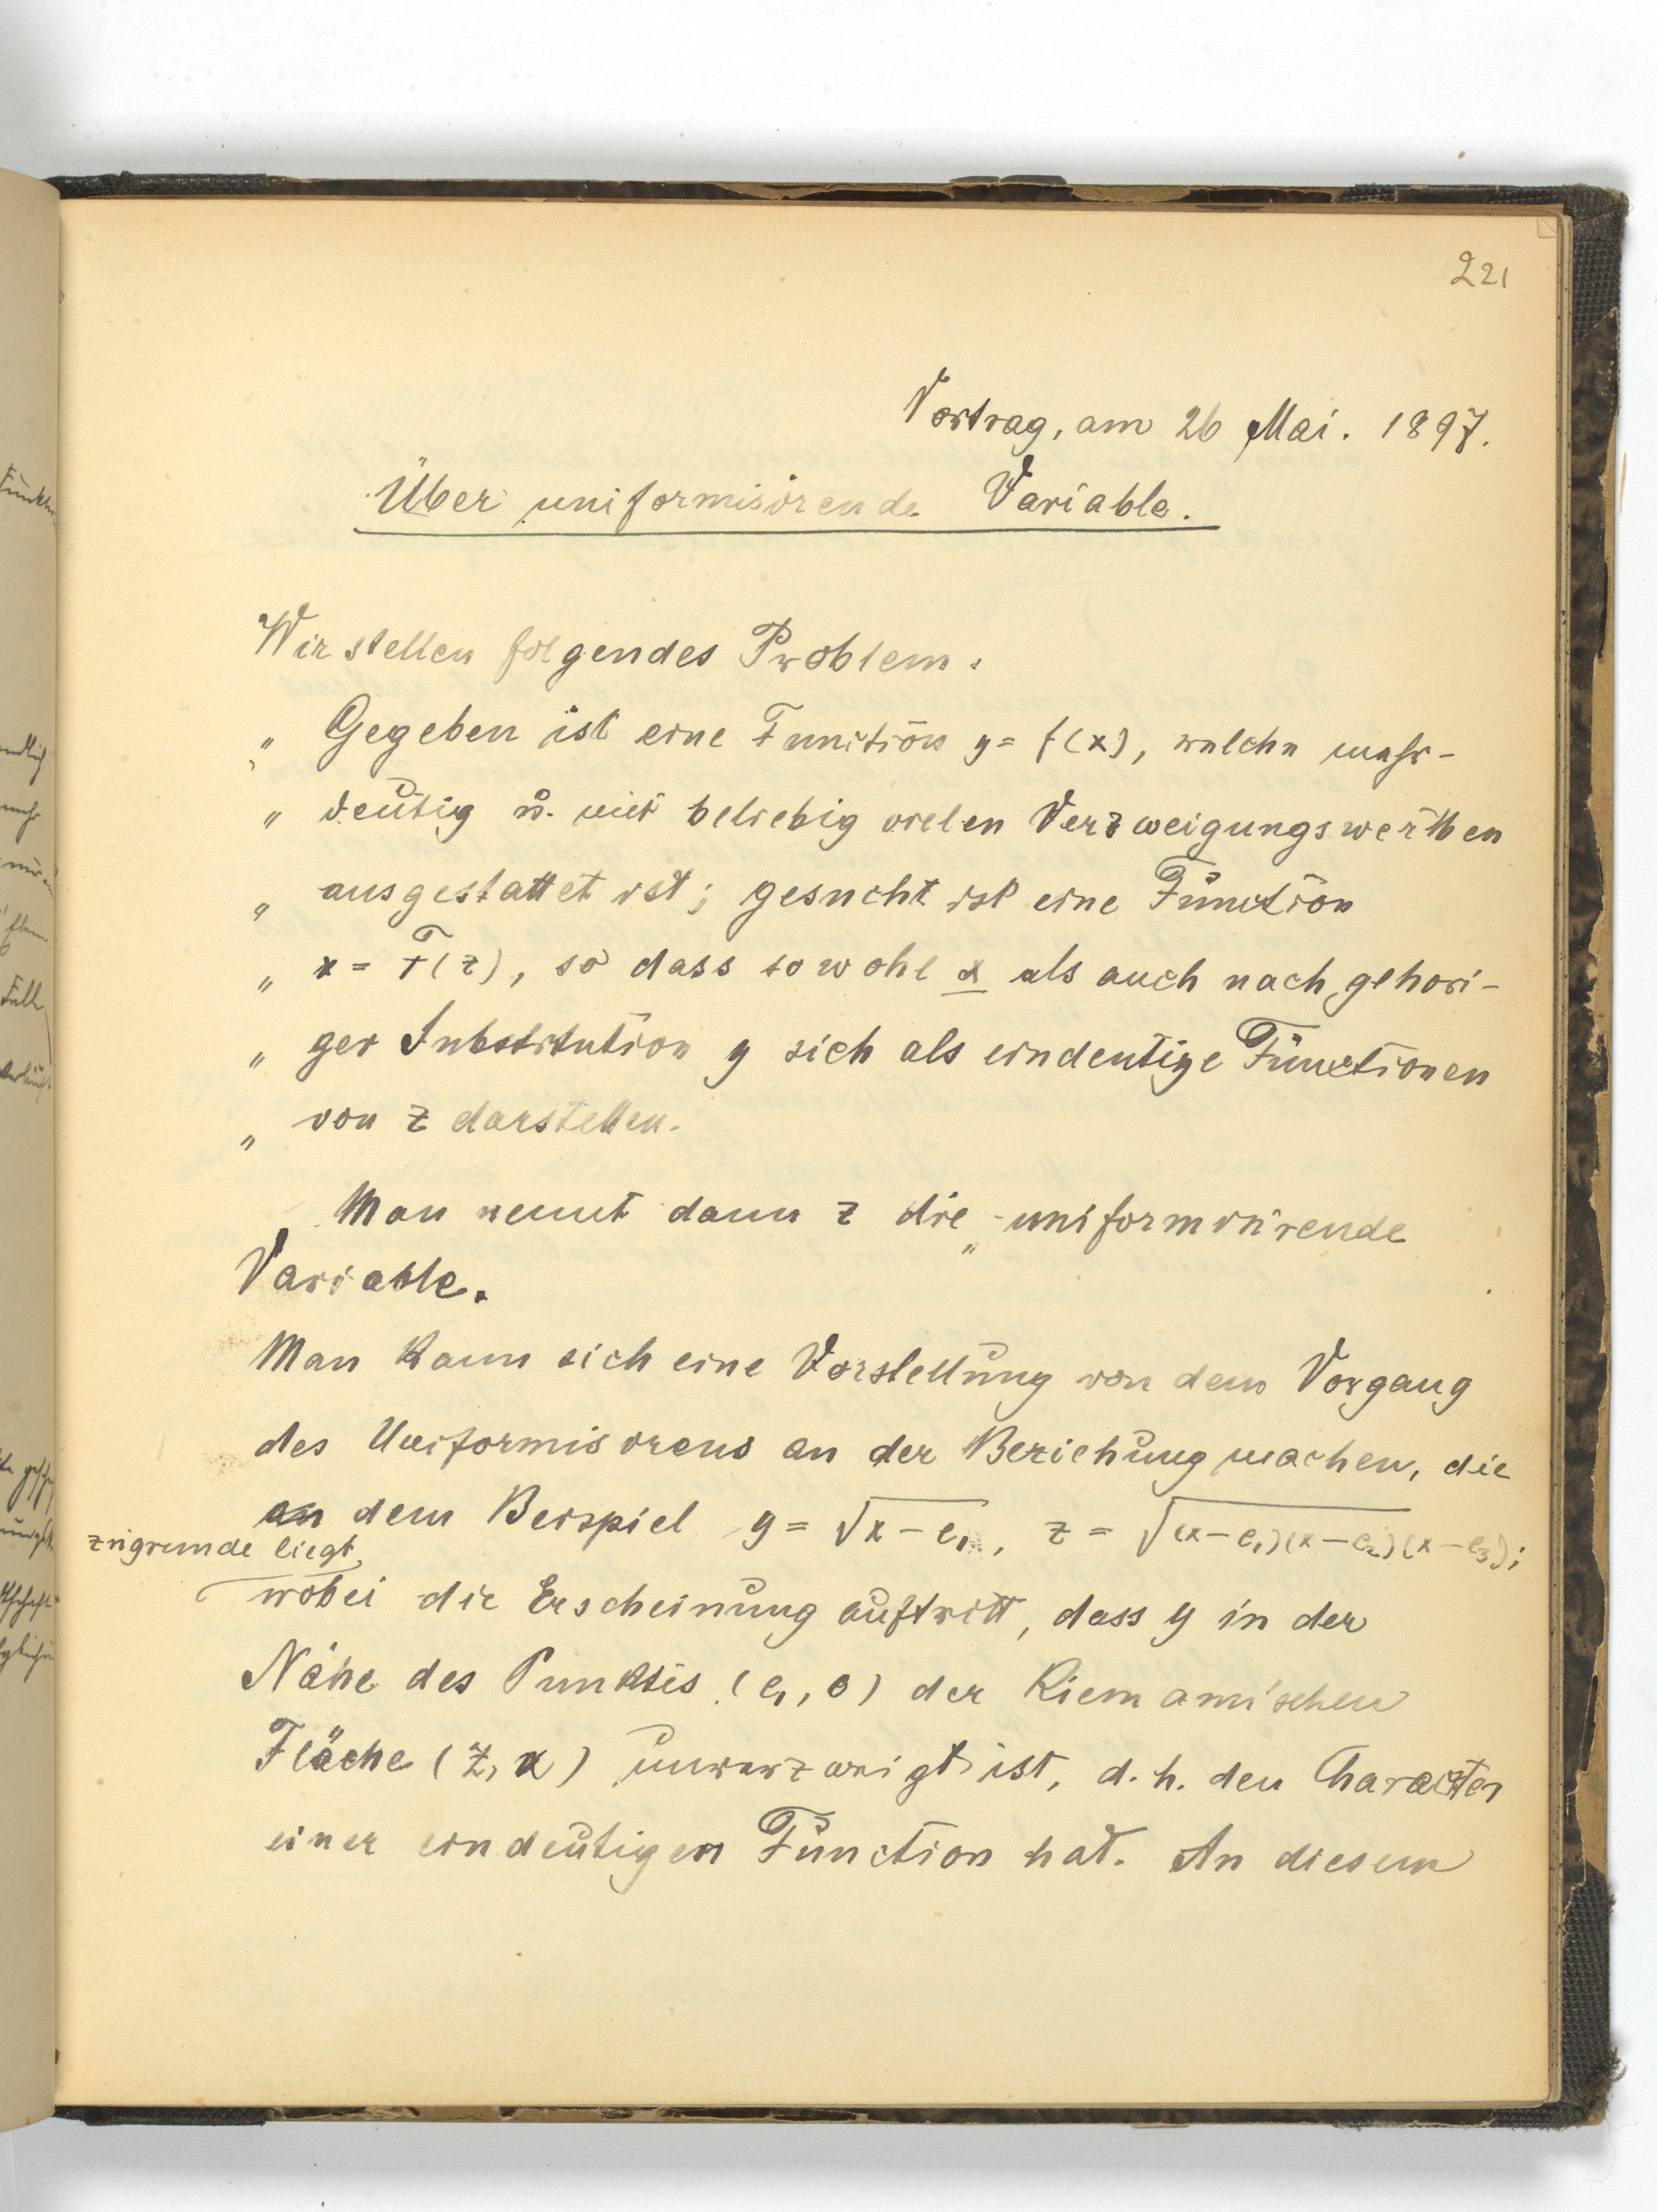 221
Vortrag, am 26 Mai. 1897.
Über uniformisirende Variable.
Wir stellen folgendes Problem.
„ Gegeben ist eine Function y = f(x), welche mehr-
„ deutig u. mit beliebig vielen Verzweigungswerthen
„ ausgestattet ist; gesucht ist eine Function
„ x = F(z), so dass sowohl x als auch nach gehori-
„ ger Substitution y sich als eindeutige Functionen
„ von z darstellen.
Man nennt dann z die „uniformisirende
Variable.
Man kann sich eine Vorstellung von dem Vorgang
des Uniformisirens an der Beziehung machen, die
an dem Beispiel y = √x – e₁, z = √(x – e₁)(x – e₂)(x – e₃);
zugrunde liegt,
wobei die Erscheinung auftritt, dass y in der
Nähe des Punktes (e₁, 0) der Riemannischen
Fläche (z, x) unverzweigt ist, d. h. den Character
einer eindeutigen Function hat. An diesem